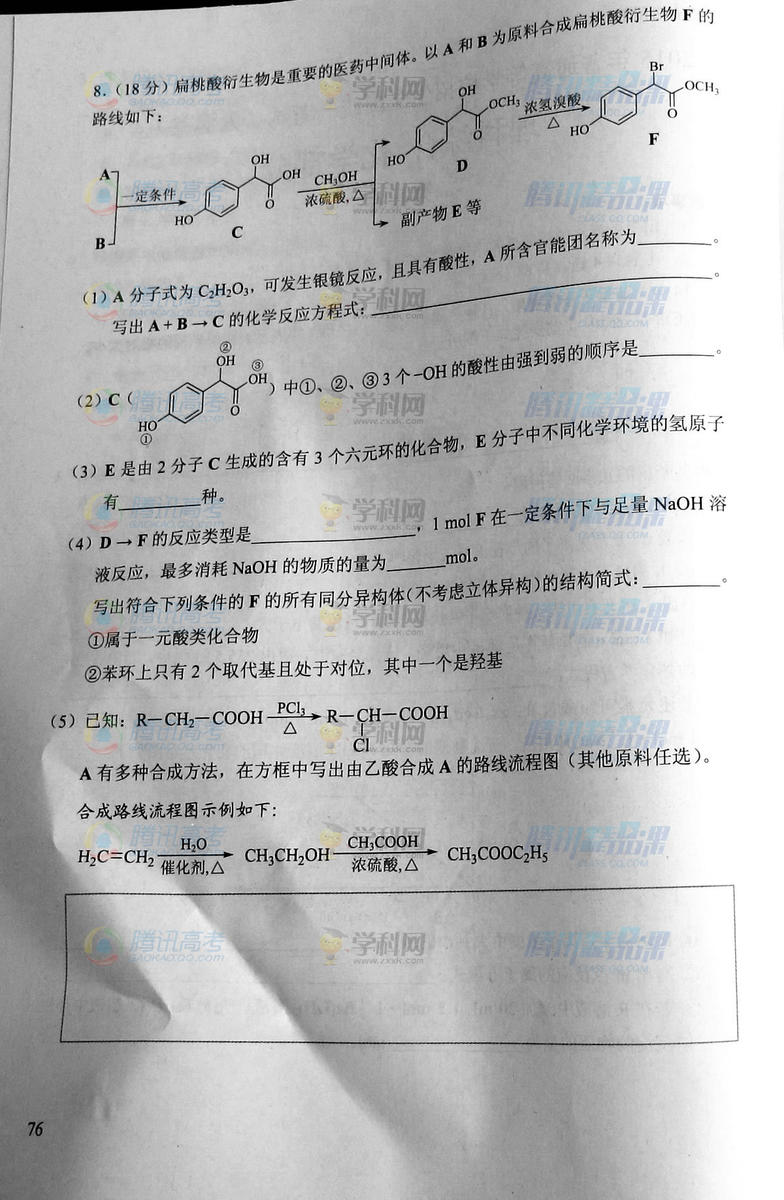 8.（18 分）扁桃酸衍生物是重要的医药中间体。以 A 和 B 为原料合成扁桃酸衍生物 F 的
路线如下：
A
B
一定条件
OH
OH
O
HO
C
CH₃OH
浓硫酸,△
OH
OCH₃
O
HO
D
浓氢溴酸
△
Br
OCH₃
O
HO
F
副产物 E 等
（1）A 分子式为 C₂H₂O₃，可发生银镜反应，且具有酸性，A 所含官能团名称为________。
写出 A + B → C 的化学反应方程式：________。
（2）C（
②
OH
③
OH
O
HO
①
）中①、②、③ 3 个 −OH 的酸性由强到弱的顺序是________。
（3）E 是由 2 分子 C 生成的含有 3 个六元环的化合物，E 分子中不同化学环境的氢原子
有________种。
（4）D → F 的反应类型是________，1 mol F 在一定条件下与足量 NaOH 溶
液反应，最多消耗 NaOH 的物质的量为______mol。
写出符合下列条件的 F 的所有同分异构体（不考虑立体异构）的结构简式：________。
①属于一元酸类化合物
②苯环上只有 2 个取代基且处于对位，其中一个是羟基
（5）已知：R−CH₂−COOH PCl₃ △ R−CH−COOH
Cl
A 有多种合成方法，在方框中写出由乙酸合成 A 的路线流程图（其他原料任选）。
合成路线流程图示例如下：
H₂C=CH₂ H₂O 催化剂,△ CH₃CH₂OH CH₃COOH 浓硫酸,△ CH₃COOC₂H₅
76
腾讯高考
GAOKAO.QQ.COM
学科网
www.zxxk.com
腾讯精品课
CLASS.QQ.COM